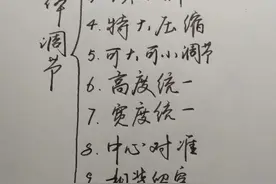 4. 特大压缩
5. 可大可小调节
体调节
6. 高度统一
7. 宽度统一
8. 中心对准
9.